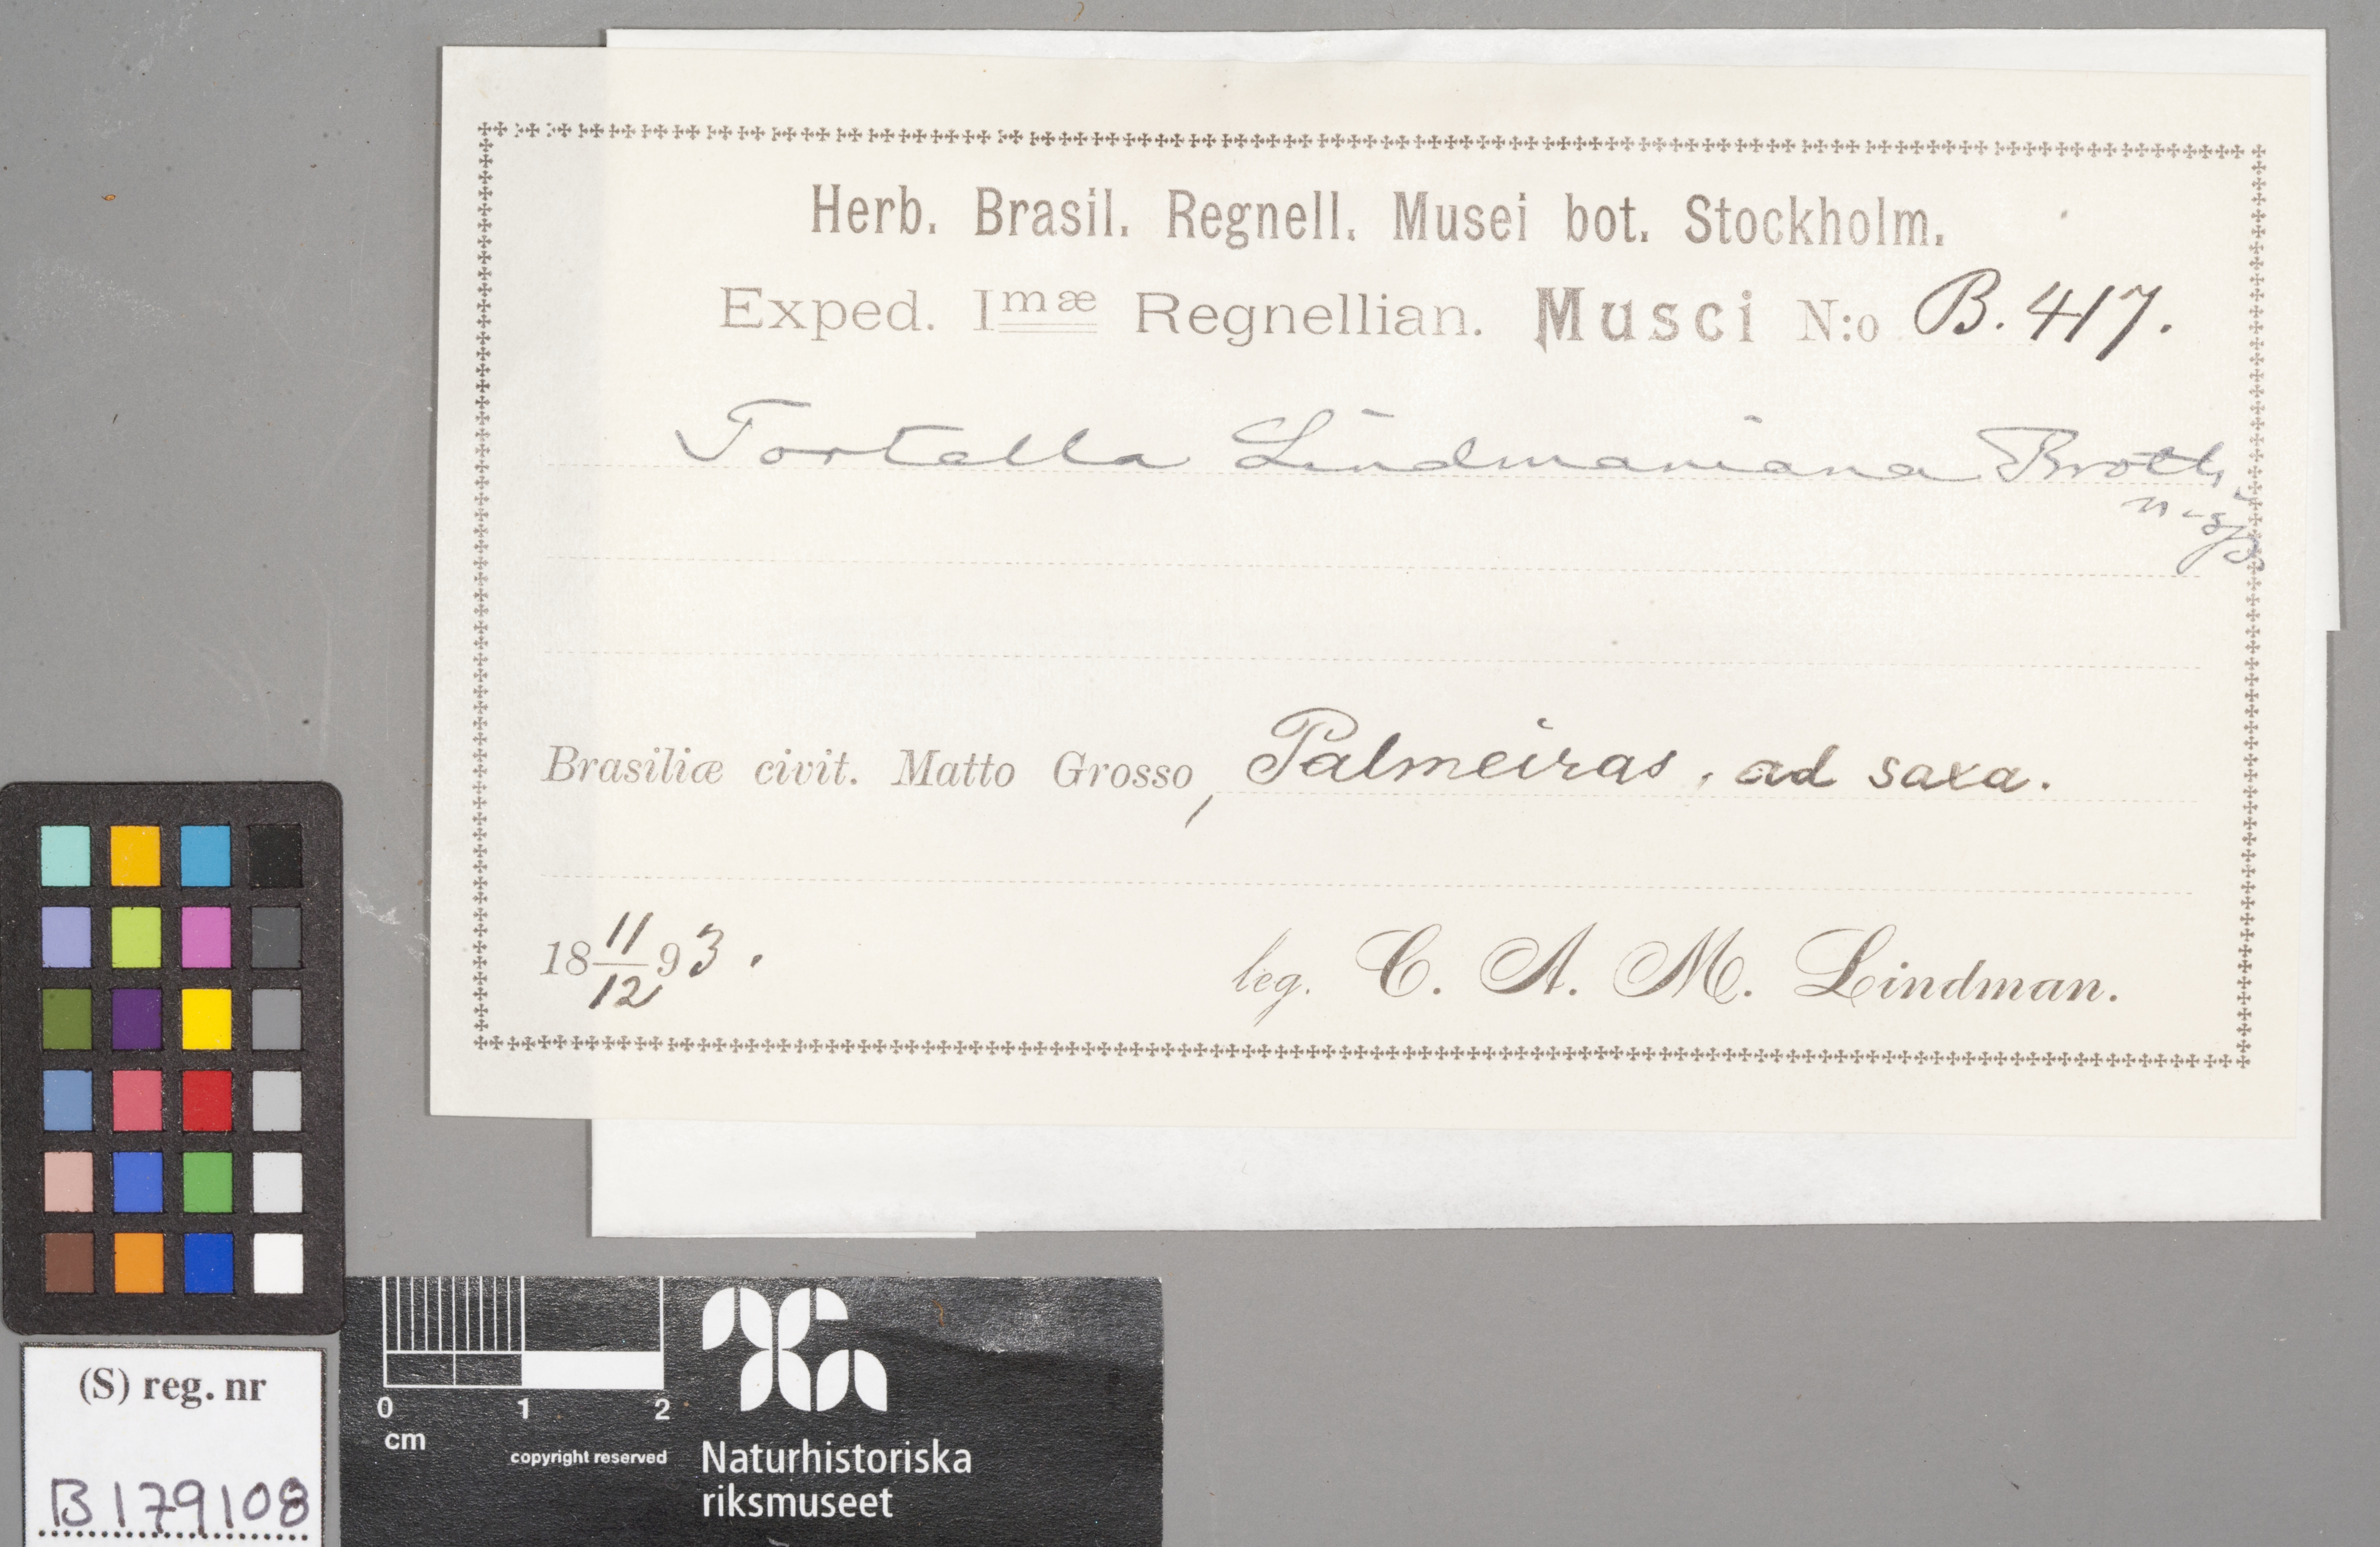 Herb. Brasil. Regnell. Musei bot. Stockholm.
Exped. Imæ Regnellian. Musci N:o B. 417.
Tortella Lindmaniana Broth.
n. sp.
Brasiliæ civit. Matto Grosso, Palmeiras, ad saxa.
18 11/12 93.
leg. C. A. M. Lindman.
(S) reg. nr
B179108
0 1 2
cm
copyright reserved
Naturhistoriska
riksmuseet